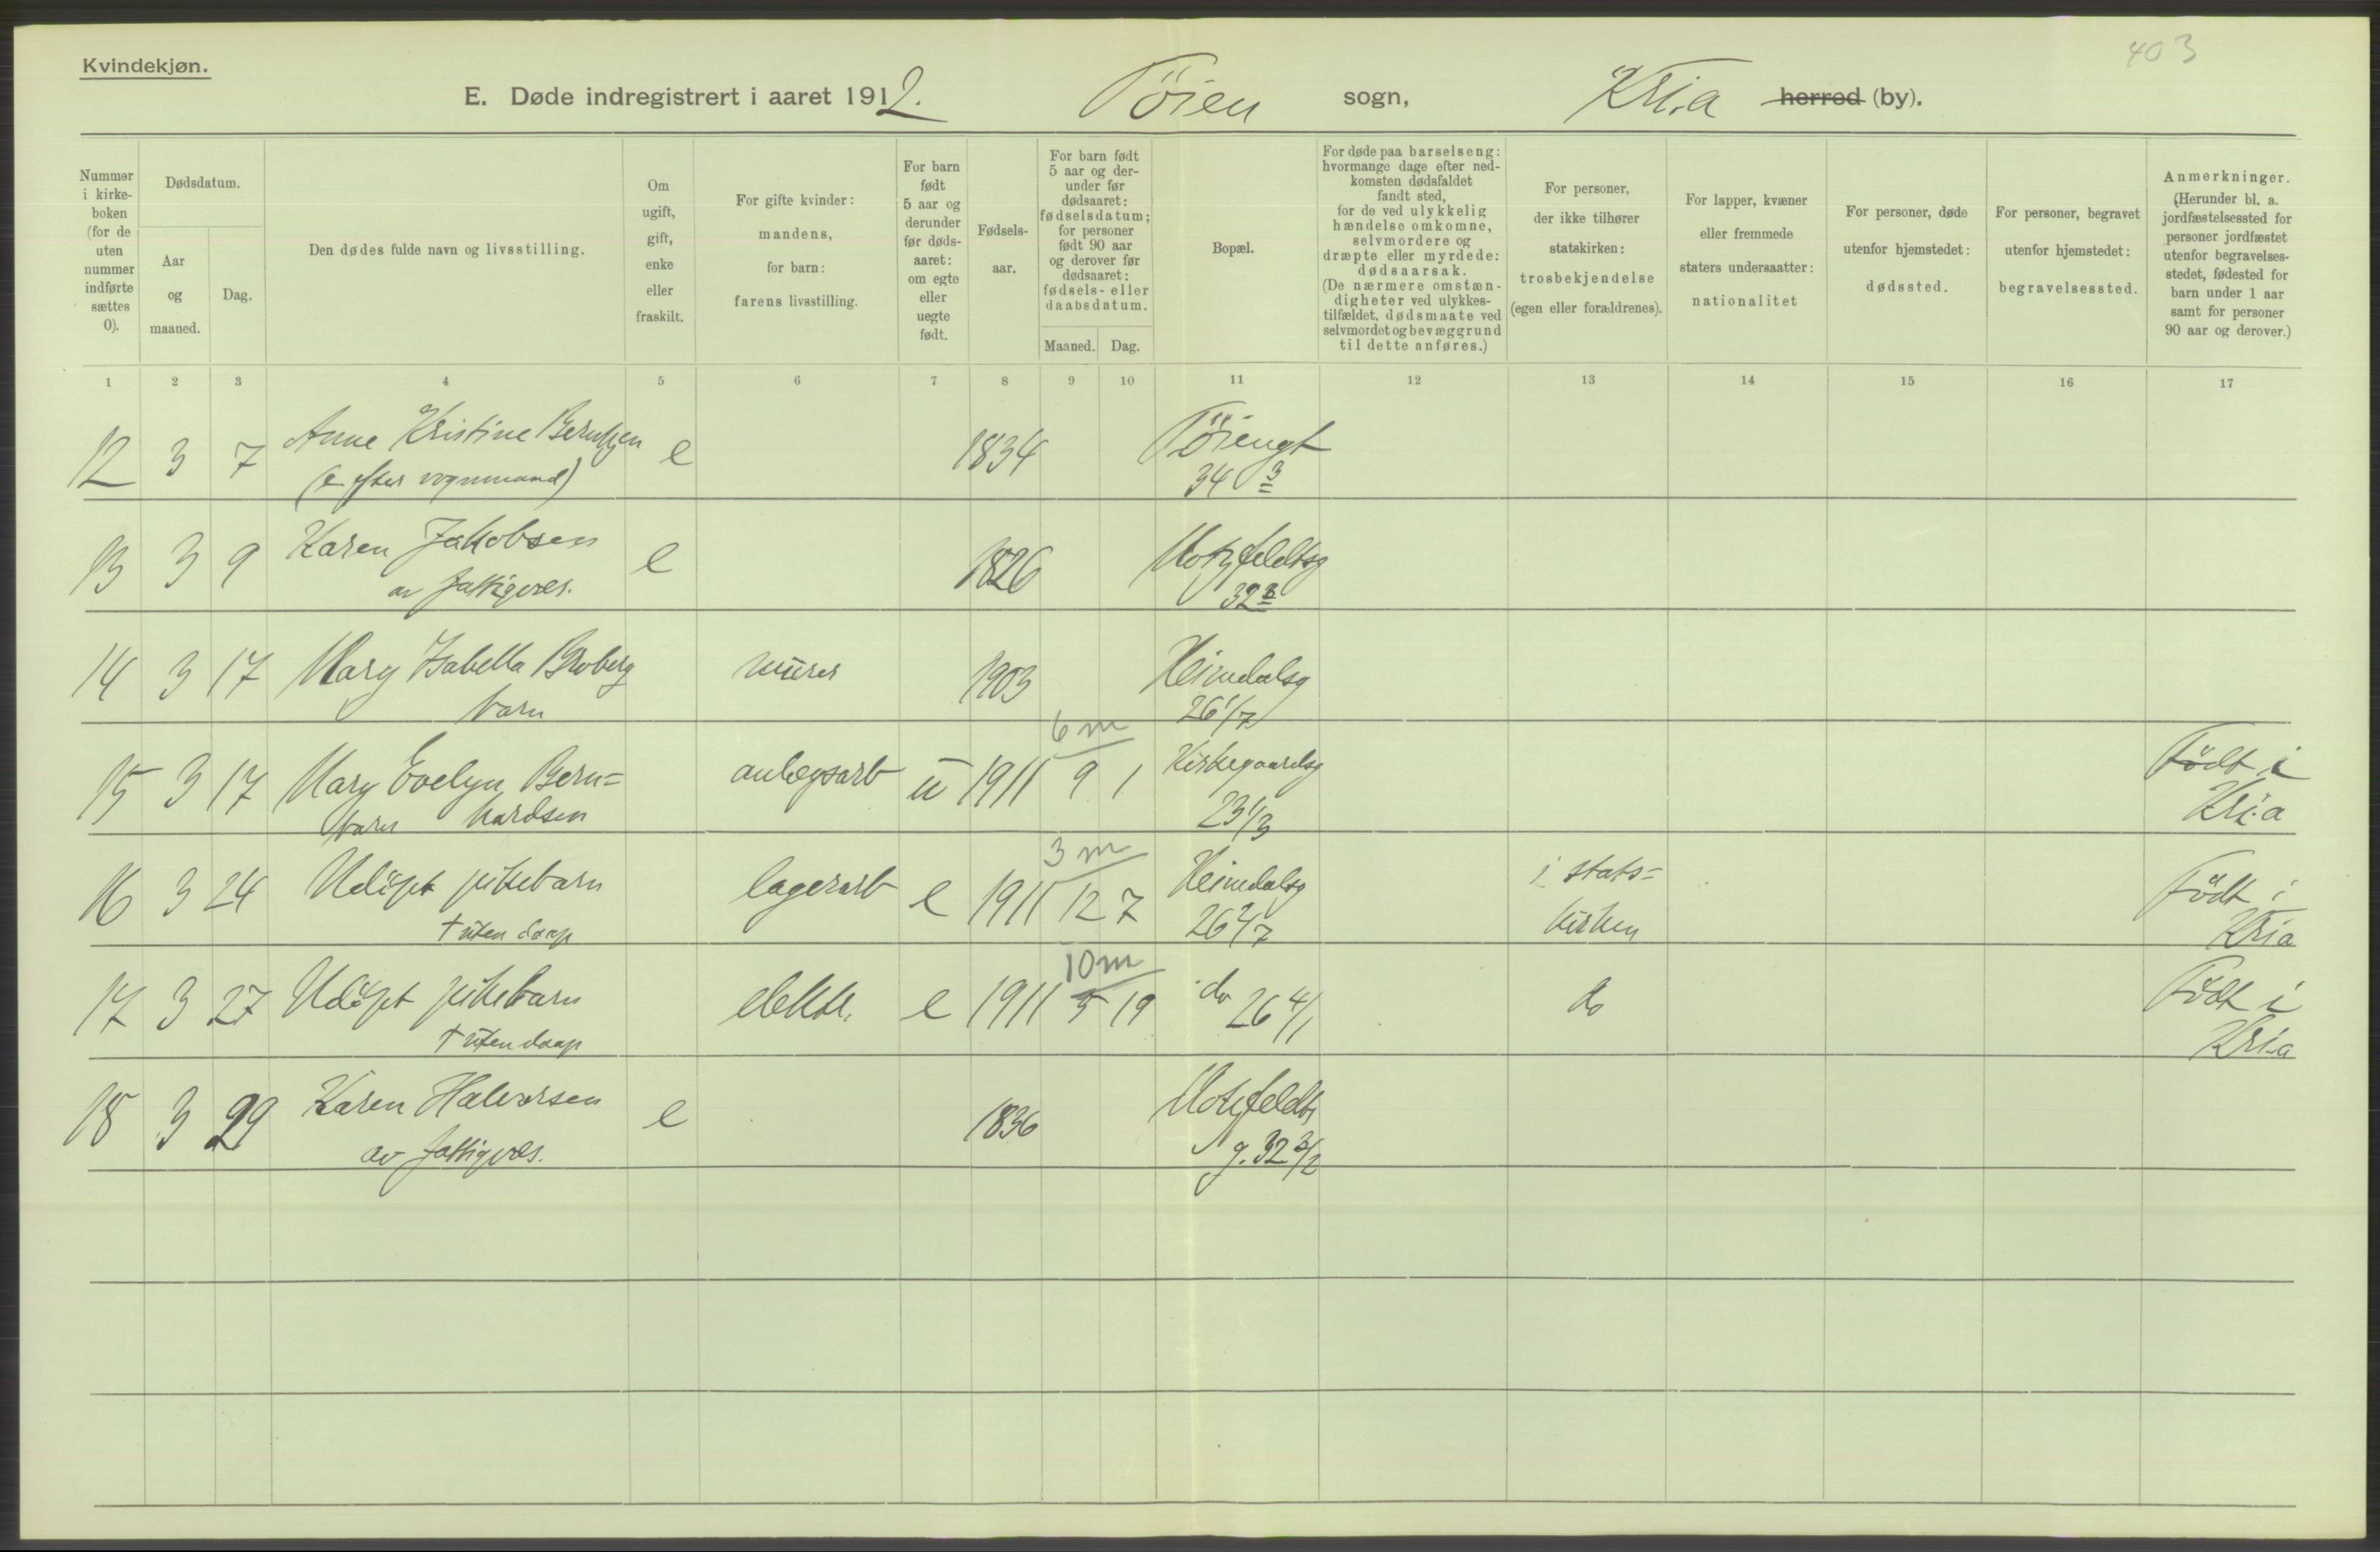 403
Kvindekjøn.
E. Døde indregistrert i aaret 1912. Töien sogn, Kri.a herred (by).
Nummer i kirke-boken (for de uten nummer indførte sættes 0).
Dødsdatum.
Aar og maaned.
Dag.
Den dødes fulde navn og livsstilling.
Om ugift, gift, enke eller fraskilt.
For gifte kvinder: mandens, for barn: farens livsstilling.
For barn født 5 aar og derunder før døds-aaret: om egte eller uegte født.
Fødsels-aar.
For barn født 5 aar og der-under før dødsaaret: fødselsdatum; for personer født 90 aar og derover før dødsaaret: fødsels- eller daabsdatum.
Maaned. Dag.
Bopæl.
For døde paa barselseng: hvormange dage efter ned-komsten dødsfaldet fandt sted, for de ved ulykkelig hændelse omkomne, selvmordere og dræpte eller myrdede: dødsaarsak. (De nærmere omstæn-digheter ved ulykkes-tilfældet, dødsmaate ved selvmordet og bevæggrund til dette anføres.)
For personer, der ikke tilhører statskirken: trosbekjendelse (egen eller forældrenes).
For lapper, kvæner eller fremmede staters undersaatter: nationalitet
For personer, døde utenfor hjemstedet: dødssted.
For personer, begravet utenfor hjemstedet: begravelsessted.
Anmerkninger. (Herunder bl. a. jordfæstelsessted for personer jordfæstet utenfor begravelses-stedet, fødested for barn under 1 aar samt for personer 90 aar og derover.)
1 2 3 4 5 6 7 8 9 10 11 12 13 14 15 16 17
12 3 7 Anne Kristine Berntzen e 1834 Töiengt
(e efter vognmand) 34 3
13 3 9 Karen Jakobsen e 1826 Motzfeldtsg
av fattigvæs. 32 3
14 3 17 Mary Isabella Broberg murer 1903 Heimdalsg
barn 26 1/7
6 m
15 3 17 Mary Evelyn Bern= anlegsarb u 1911 9 1 Kirkegaardsg Födt i
barn hardsen 23 1/3 Kri.a
3 m
16 3 24 Udöpt pikebarn lagerarb e 1911 12 7 Heimdalsg i stats= Födt i
† uten daap 26 2/7 kirken Kria
10 m
17 3 27 Udöpt pikebarn elektr. e 1911 5 19 do 26 4/1 do Födt i
† uten daap Kri.a
18 3 29 Karen Halvorsen e 1836 Motzfeldts
av fattigvæs. g. 32 3/2